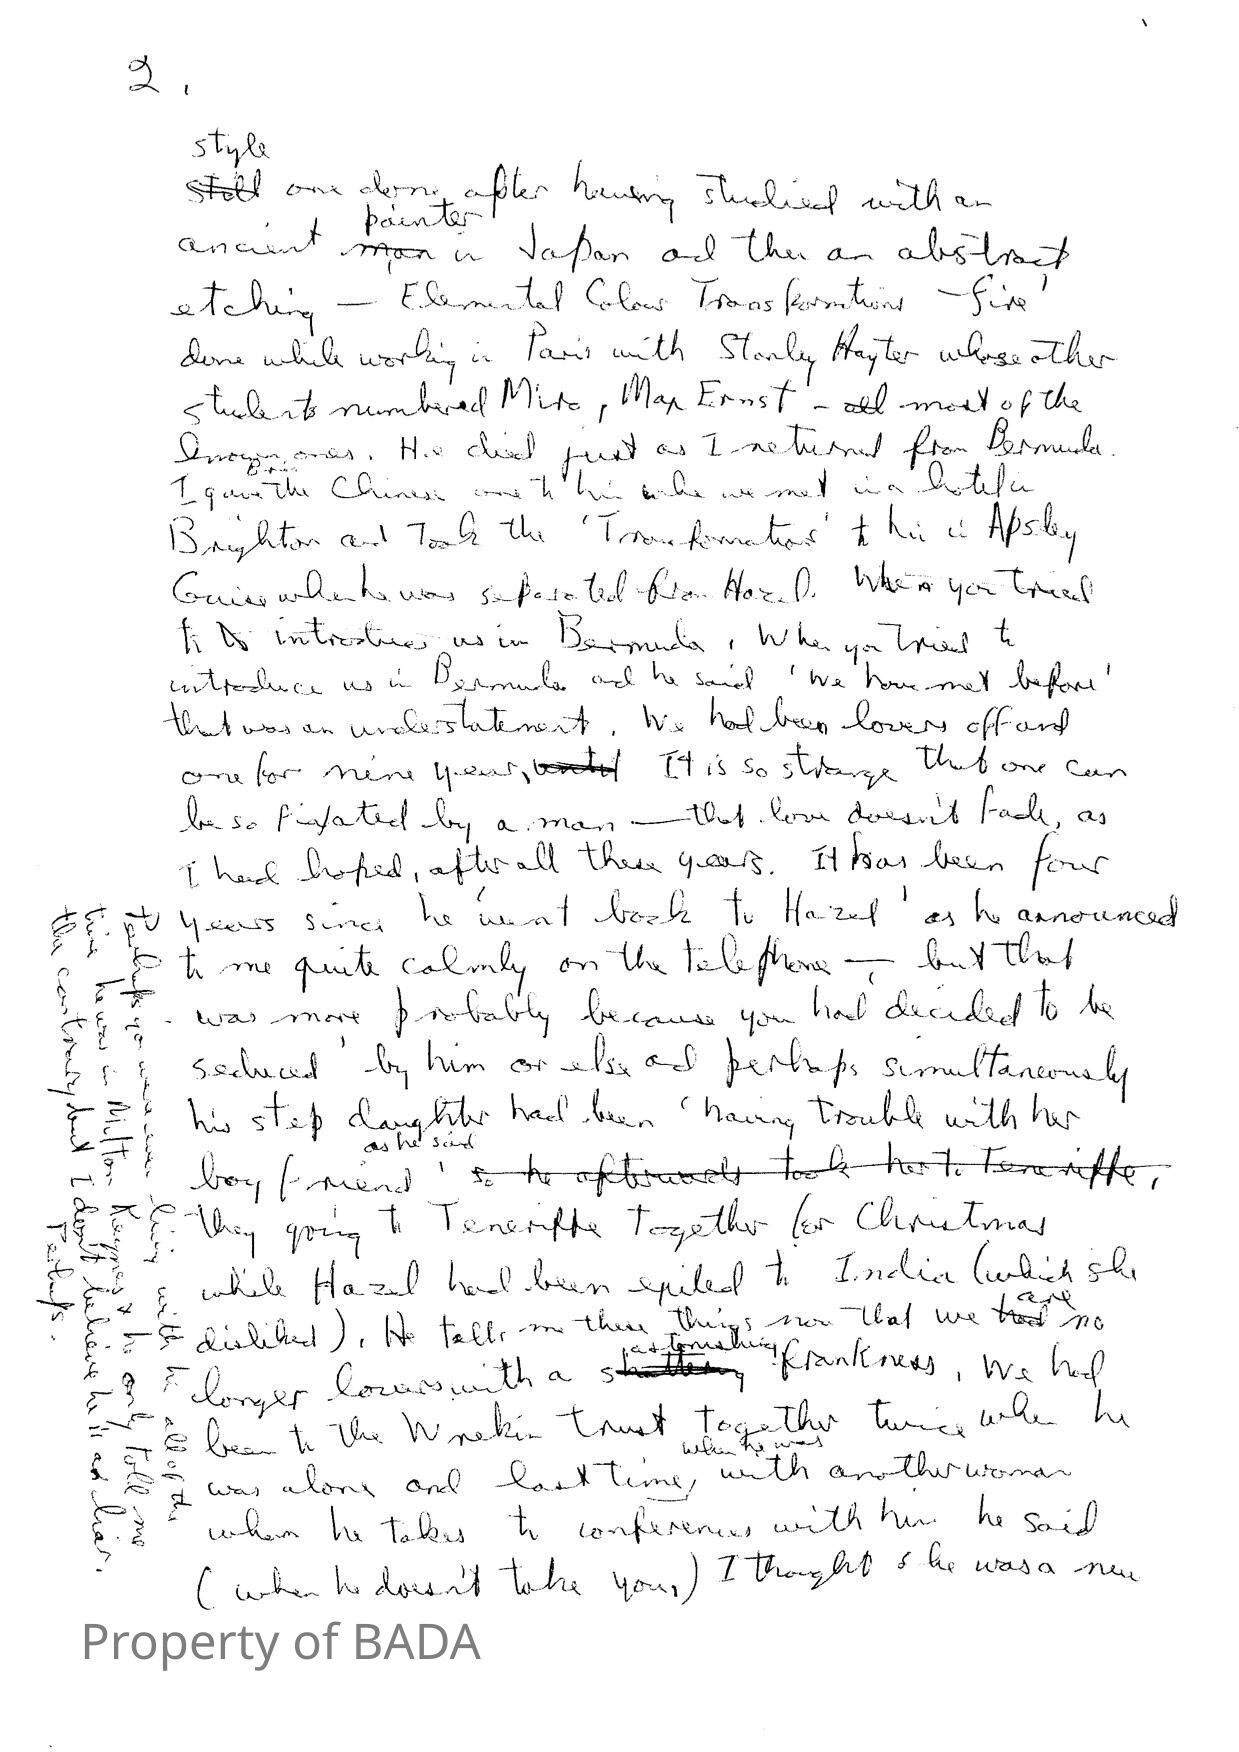 2.
style
still one done after having studied with an
painter
ancient man in Japan and then an abstract
etching — Elemental Colour Transformations - fire'
done while working in Paris with Stanley Hayter whose other
students numbered Miro, Max Ernst - all most of the
known ones. He died just as I returned from Bermuda.
I gave the Chinese one to him when we met in a hotel in
Brighton and took the 'Transformations' to him in Apsley
Guise when he was separated from Hazel. When you tried
to introduce us in Bermuda, When you tried to
introduce us in Bermuda and he said 'We have met before'
that was an understatement. We had been lovers off and
one for nine years, until It is so strange that one can
be so fixated by a man — that love doesn't fade, as
I had hoped, after all these years. It has been four
years since he 'went back to Hazel' as he announced
to me quite calmly on the telephone — but that
was more probably because you had decided to be
seduced' by him or else and perhaps simultaneously
his step daughter had been 'having trouble with her
as he said
boy friend' so he afterwards took her to Teneriffe,
they going to Teneriffe together for Christmas
while Hazel had been exiled to India (which she
are
disliked). He tells me these things now that we had no
astonishing
longer lovers with a shattering frankness. We had
been to the Wrekin trust together twice when he
when he was
was alone and last time, with another woman
whom he takes to conferences with him he said
(when he doesn't take you,) I thought she was a new
Perhaps you were even living with him all of the
time he was in Milton Keynes & he only told me
the contrary but I don't believe he is a liar.
Perhaps.
Property of BADA